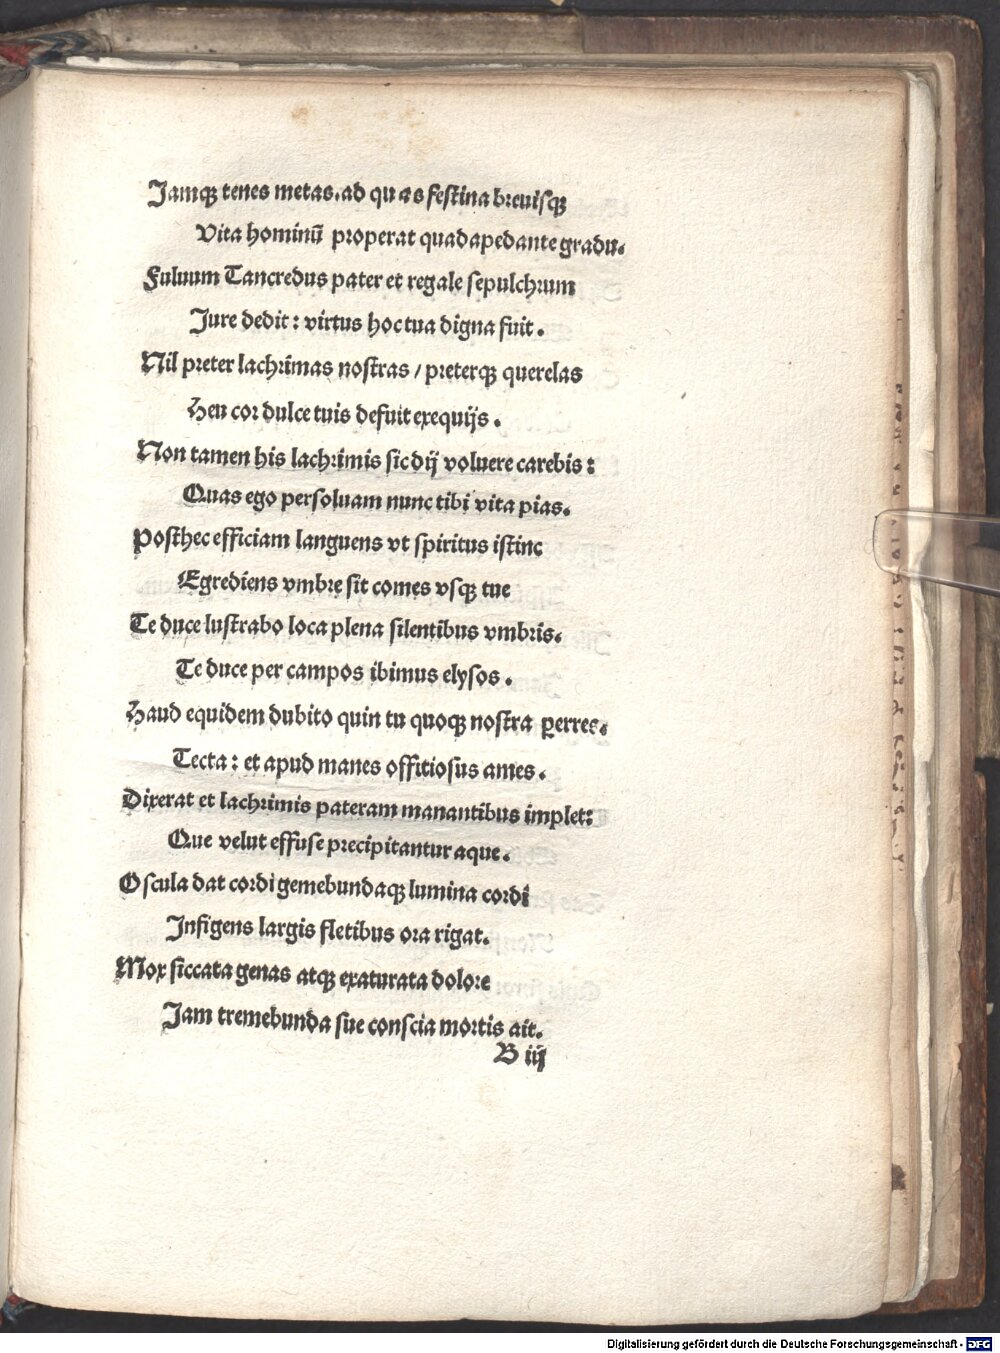 Jamqꝫ tenes metas. ad quas festina breuisqꝫ
Vita hominū properat quadapedante gradu.
Fuluum Tancredus pater et regale sepulchrum
Jure dedit: virtus hoc tua digna fuit.
Nil preter lachrimas nostras / preterqꝫ querelas
Heu cor dulce tuis defuit exequijs.
Non tamen his lachrimis sic dij voluere carebis:
Quas ego persoluam nunc tibi vita pias.
Posthec efficiam languens vt spiritus istinc
Egrediens vmbrę sit comes vsqꝫ tue
Te duce lustrabo loca plena silentibus vmbris.
Te duce per campos ibimus elysos.
Haud equidem dubito quin tu quoqꝫ nostra ꝑerres.
Tecta: et apud manes offitiosus ames.
Dixerat et lachrimis pateram manantibus implet:
Que velut effuse precipitantur aque.
Oscula dat cordi gemebundaqꝫ lumina cordi
Infigens largis fletibus ora rigat.
Mox siccata genas atqꝫ exaturata dolore
Jam tremebunda sue conscia mortis ait.
B iij
Digitalisierung gefördert durch die Deutsche Forschungsgemeinschaft - DFG